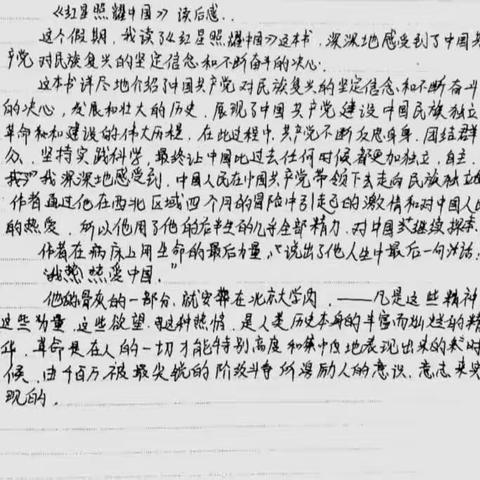 《红星照耀中国》读后感..
这个假期,我读了《红星照耀中国》这本书,深深地感受到了中国共
产党对民族复兴的坚定信念和不断奋斗的决心.
这本书详尽地介绍了中国共产党对民族复兴的坚定信念和不断奋斗
的决心,发展和壮大的历史.展现了中国共产党建设中国民族独立
革命和和建设的伟大历程.在此过程中,共产党不断反思自身.团结群
众.坚持实践科学,最终让中国比过去任何时候都更加独立.自主.
我深深地感受到,中国人民在中国共产党带领下去走向民族独立的
作者通过他在西北区域四个月的冒险中引起的激情和对中国人民
的热爱.所以他用了他的后半生的几乎全部精力.对中国继续探索.
作者在病床上用生命的最后力量,"说出了他人生中最后一句洪话:
"我热爱中国."
他的骨灰的一部分.就安葬在北京大学内.——凡是这些精神
这些力量.这些欲望.这种热情.是人类历史本身的丰富而灿烂的精
华.革命是在人的一切才能特别高度和集中地表现出来的时
候.由千百万被最尖锐的阶级斗争所激励人的意识.意志来实
现的.